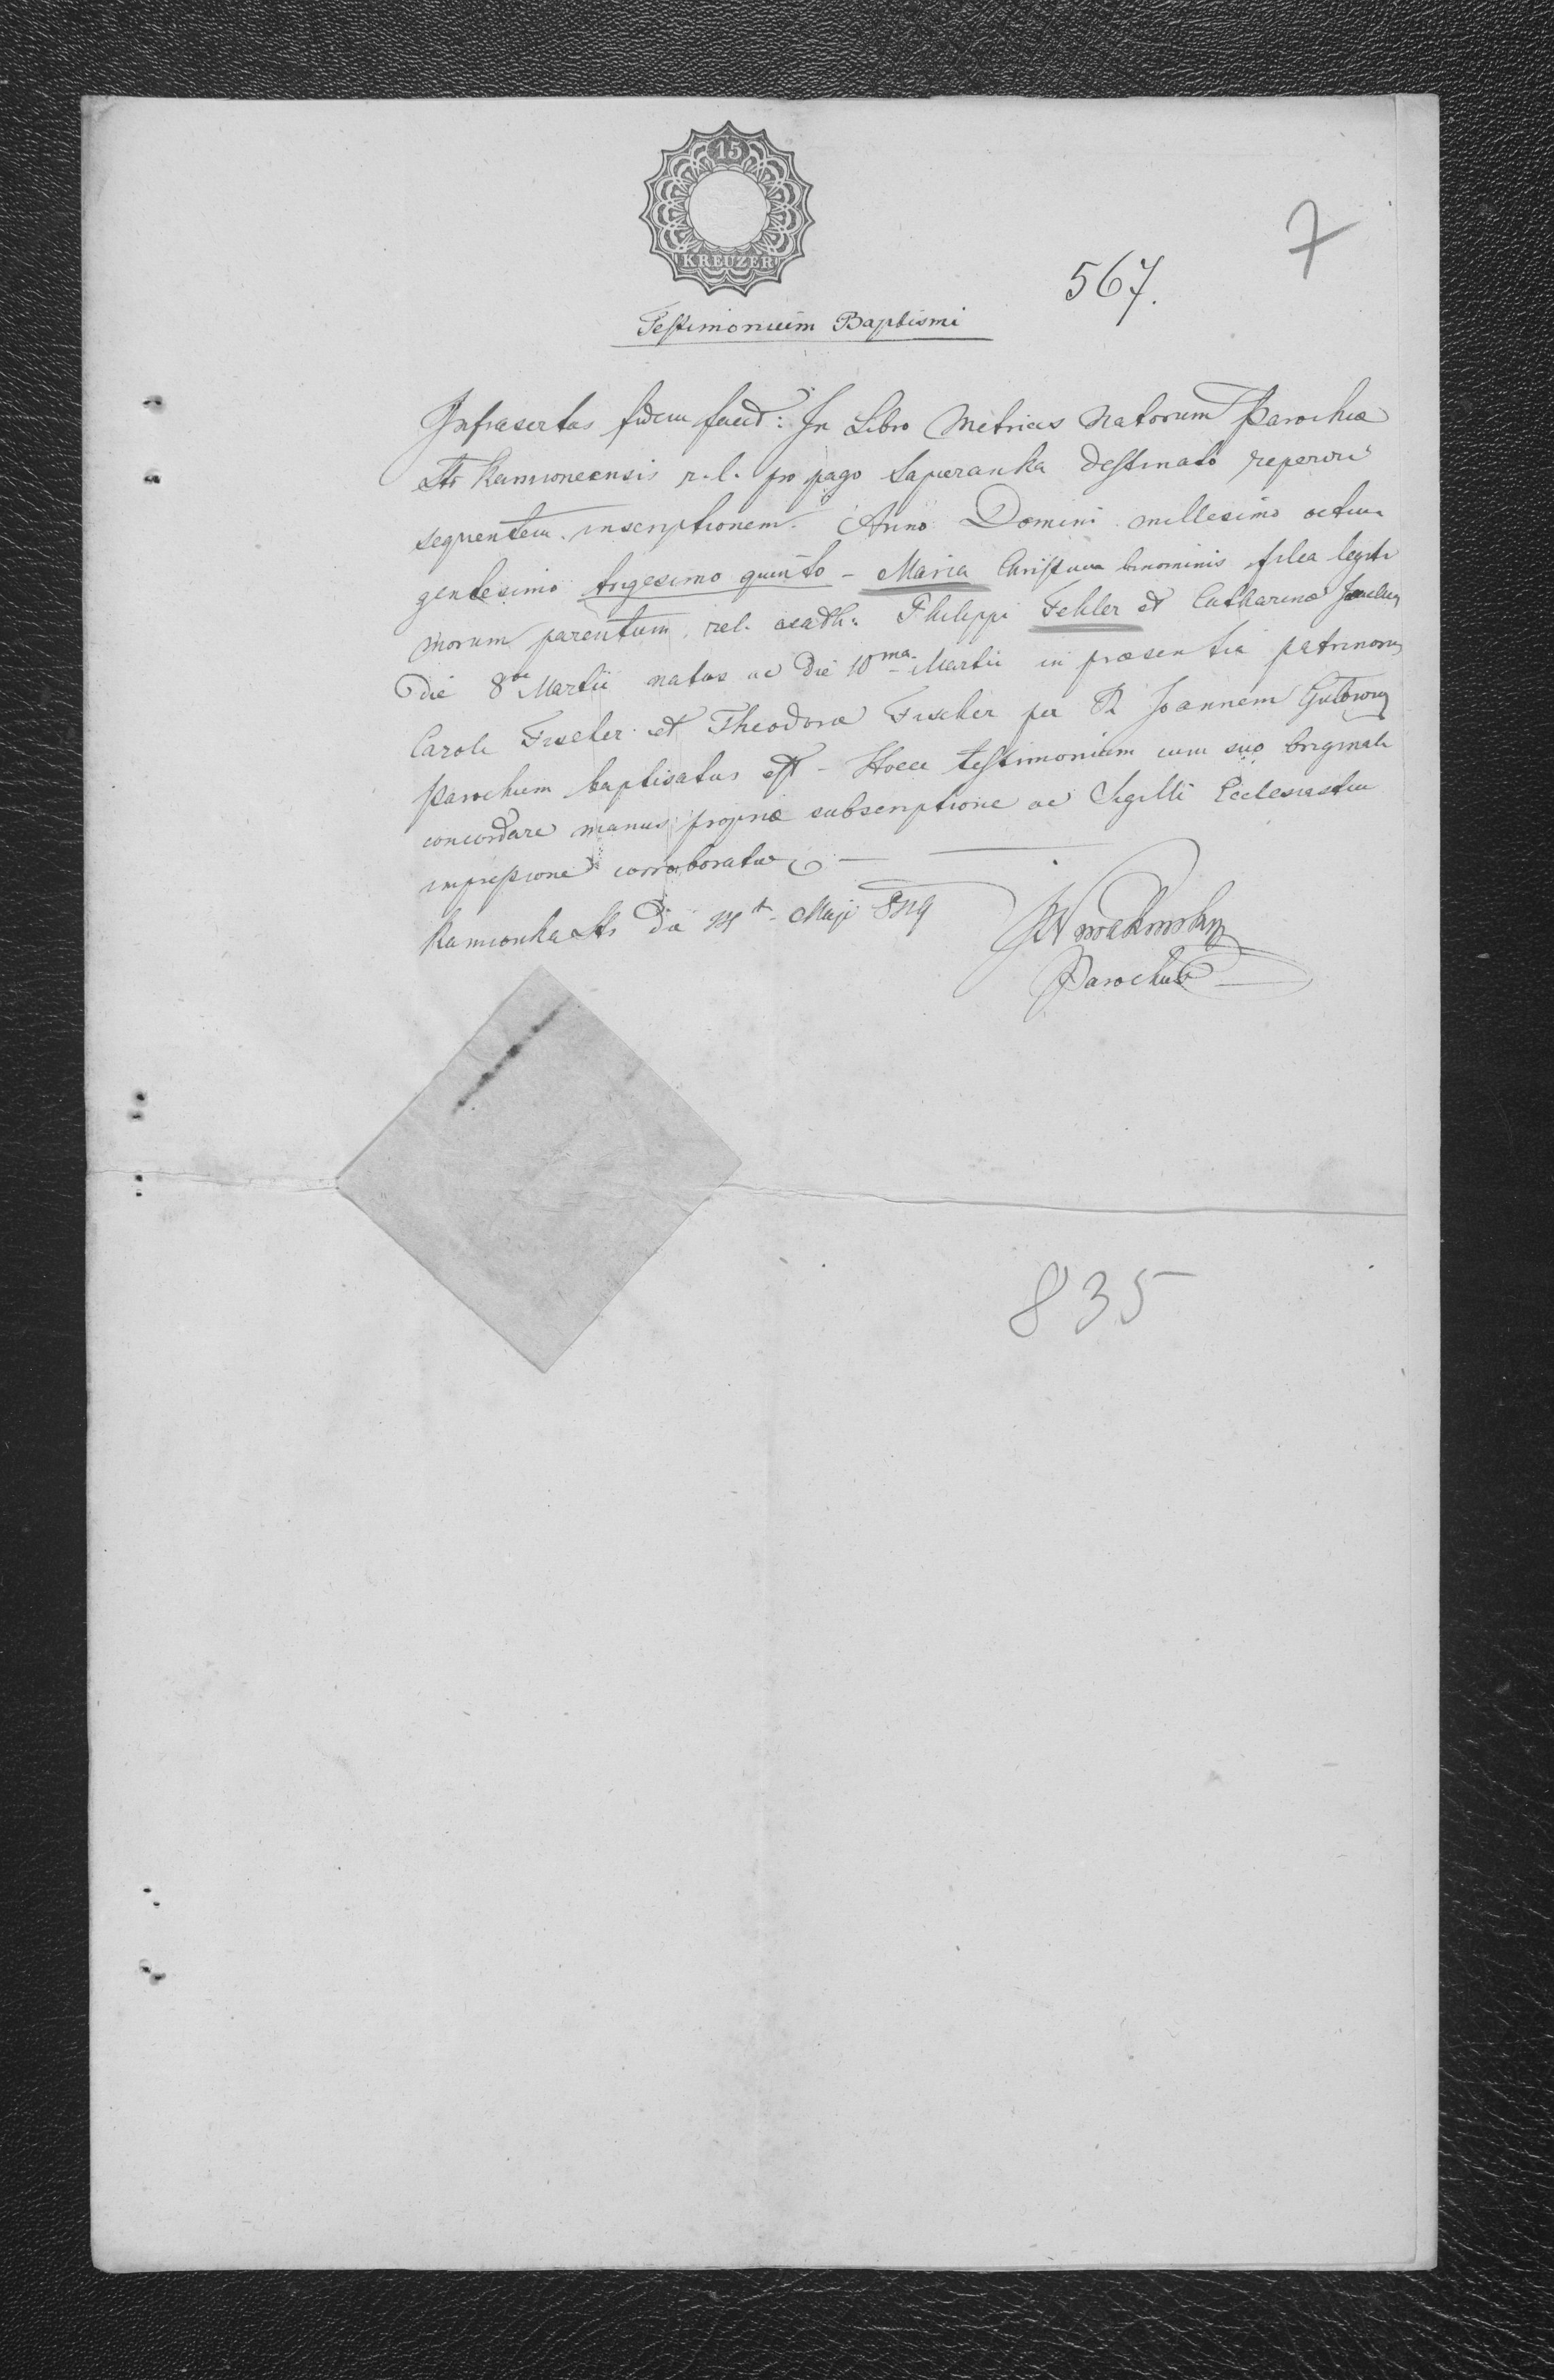 15
KREUZER
7
567.
Testimonium Baptismi
Infrasertas fidem facit: In Libro Metrices Natorum Parochiæ
Str Kamioneensis r. l. pro pago Sapieranka destinato reperiri
sequentem inscriptionem. Anno Domini millesimo octin
gentesimo trigesimo quinto - Maria Christina binominis filia legiti
morum parentum, rel. acath: Philippi Fehler et Catharinæ
die 8va Martii natus ac die 10ma Martii in præsentia patrinorum
Caroli Fischer et Theodora Fischer per R Joannem
parochum baptisatus est - Hocce testimonium cum suo originali
concordare manus propriæ subscriptione ac Sigilli Ecclesiastici
impressione corroboratur
Kamionka Str die Maji
Parochus
835